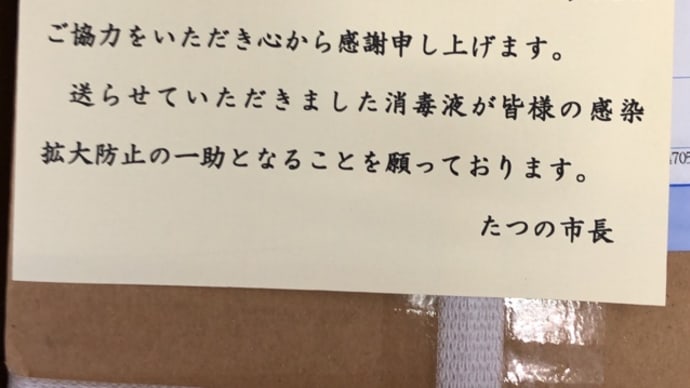 ご協力をいただき心から感謝申し上げます。
送らせていただきました消毒液が皆様の感染
拡大防止の一助となることを願っております。
たつの市長